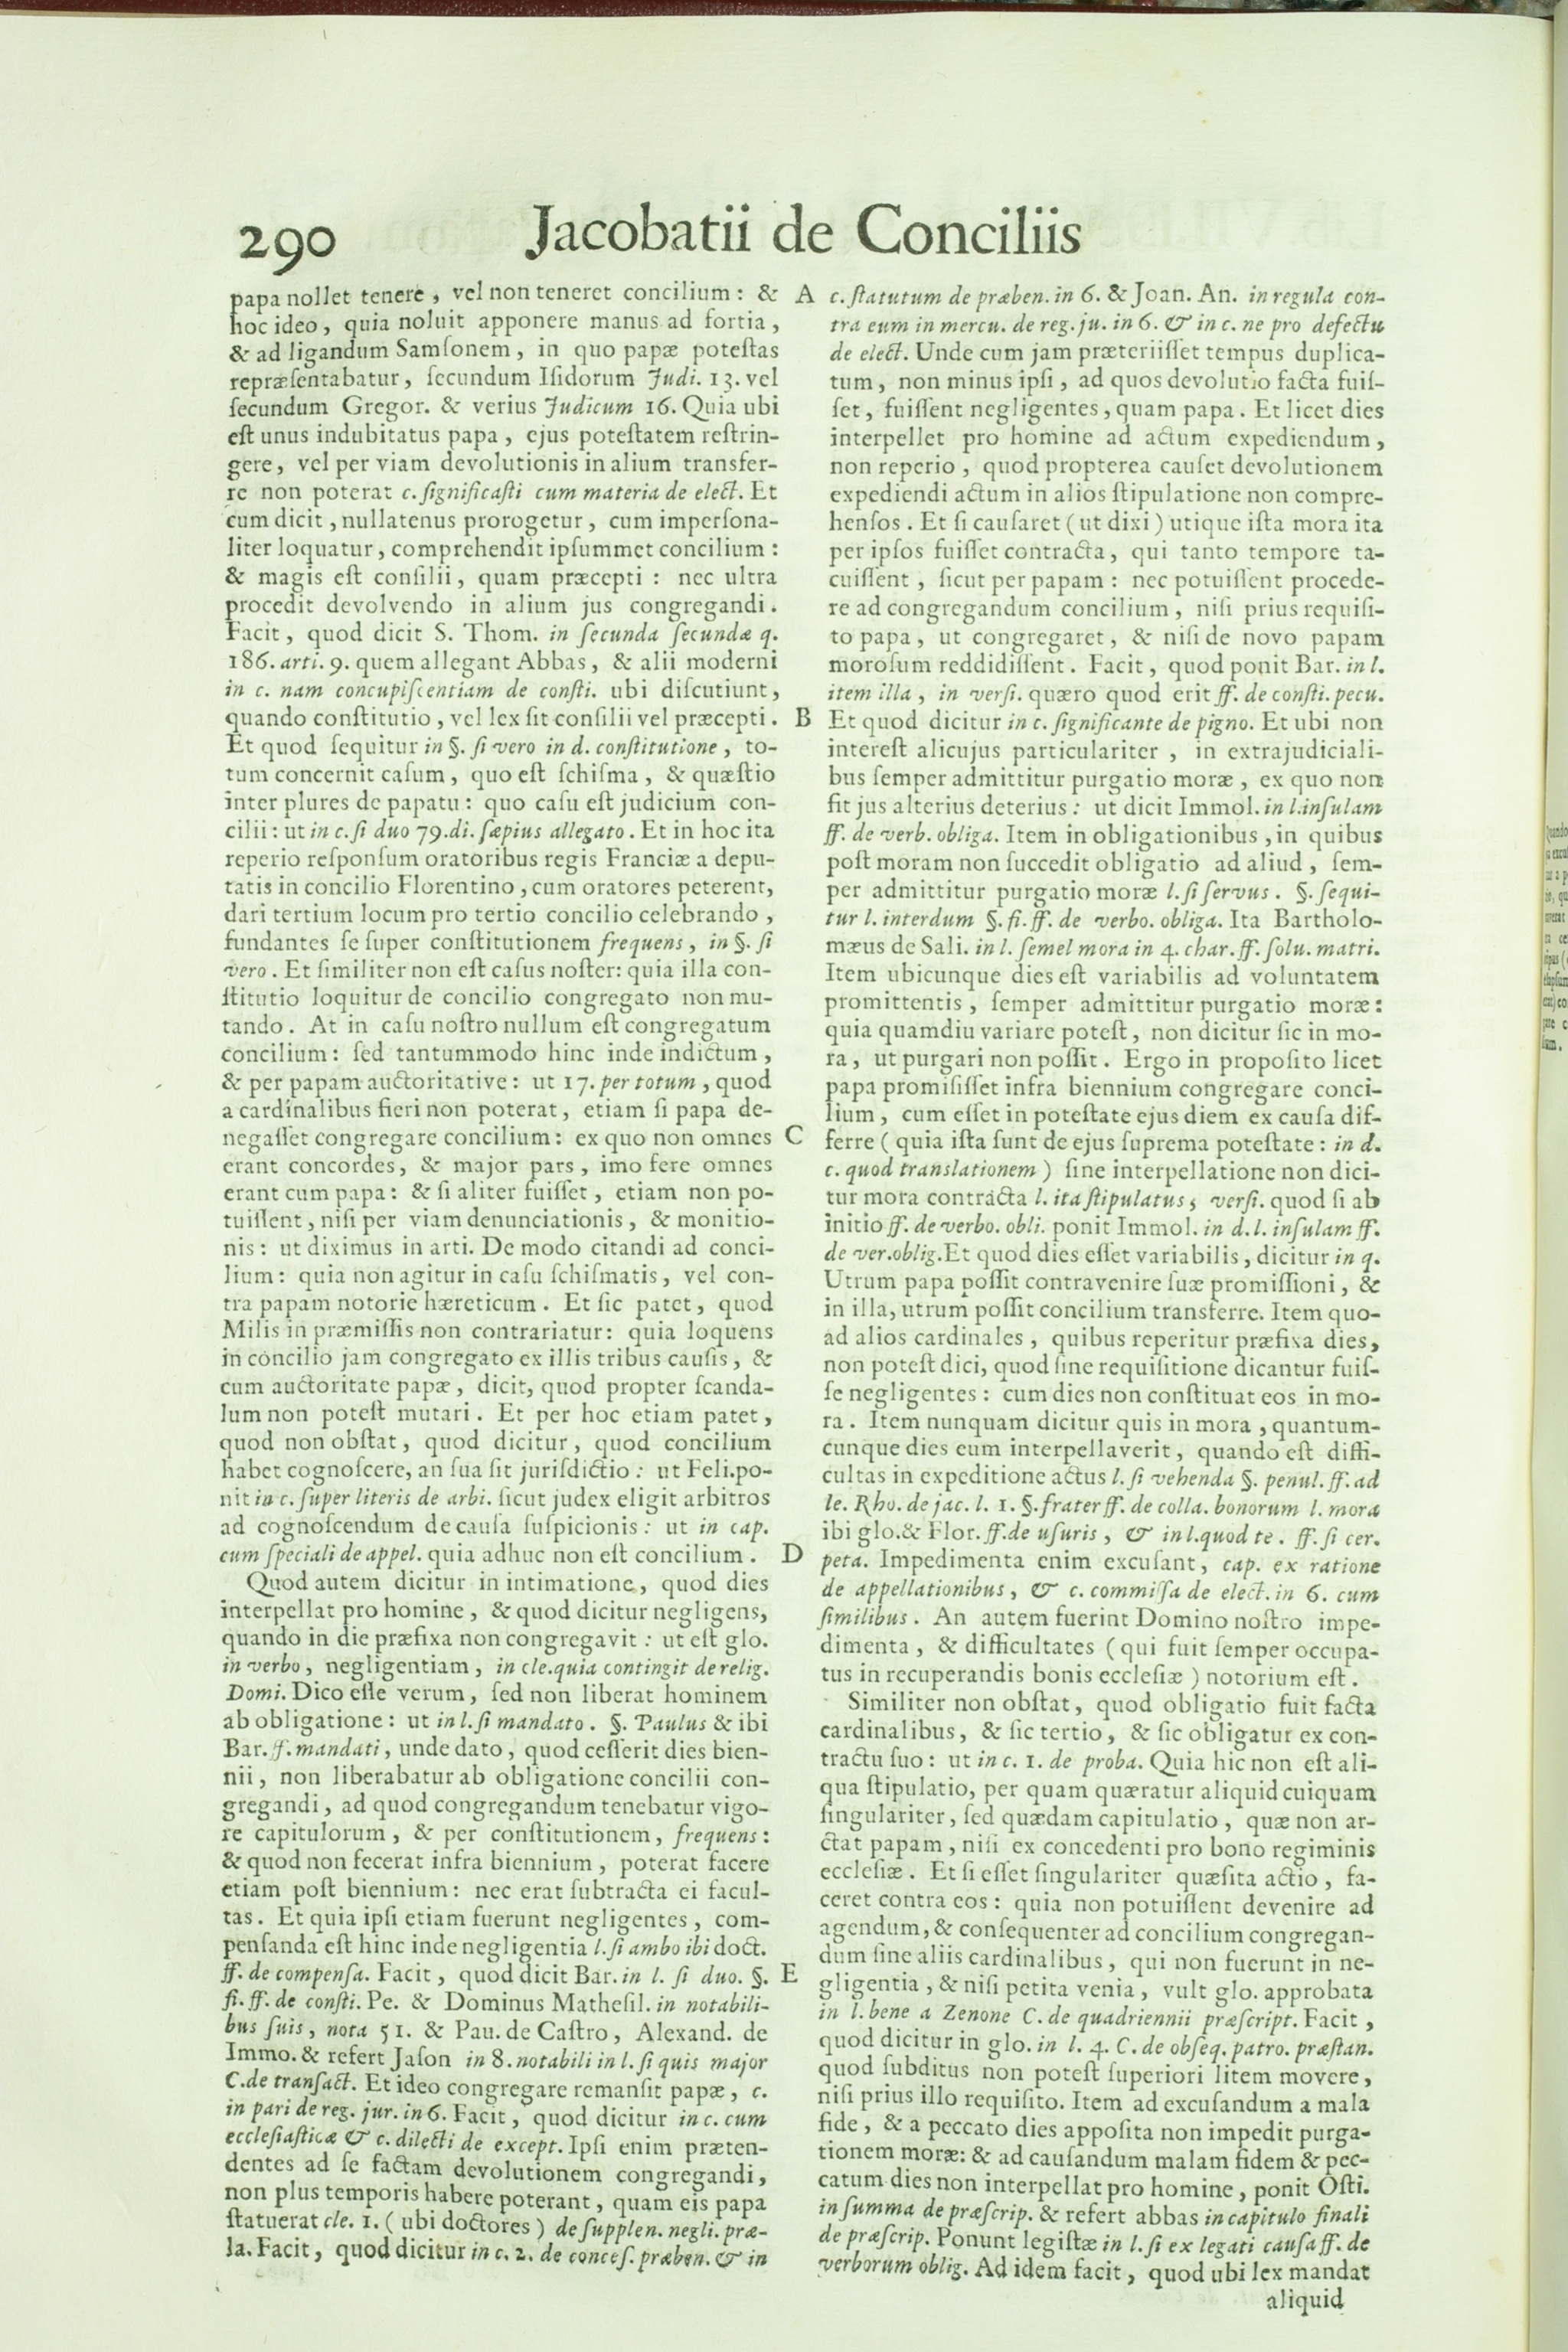 290 Jacobatii de Conciliis
papa nollet tenere, vel non teneret concilium: &
hoc ideo, quia noluit apponere manus ad fortia,
& ad ligandum Samſonem, in quo papæ poteſtas
repræſentabatur, ſecundum Iſidorum Judi. 13. vel
ſecundum Gregor. & verius Judicum 16. Quia ubi
eſt unus indubitatus papa, ejus poteſtatem reſtrin-
gere, vel per viam devolutionis in alium transfer-
re non poterat c. ſignificaſti cum materia de elect. Et
cum dicit, nullatenus prorogetur, cum imperſona-
liter loquatur, comprehendit ipſummet concilium:
& magis eſt conſilii, quam præcepti: nec ultra
procedit devolvendo in alium jus congregandi.
Facit, quod dicit S. Thom. in ſecunda ſecundæ q.
186. arti. 9. quem allegant Abbas, & alii moderni
in c. nam concupiſcentiam de conſti. ubi diſcutiunt,
quando conſtitutio, vel lex ſit conſilii vel præcepti.
Et quod ſequitur in §. ſi vero in d. conſtitutione, to-
tum concernit caſum, quo eſt ſchiſma, & quæſtio
inter plures de papatu: quo caſu eſt judicium con-
cilii: ut in c. ſi duo 79. di. ſæpius allegato. Et in hoc ita
reperio reſponſum oratoribus regis Franciæ a depu-
tatis in concilio Florentino, cum oratores peterent,
dari tertium locum pro tertio concilio celebrando,
fundantes ſe ſuper conſtitutionem frequens, in §. ſi
vero. Et ſimiliter non eſt caſus noſter: quia illa con-
ſtitutio loquitur de concilio congregato non mu-
tando. At in caſu noſtro nullum eſt congregatum
concilium: ſed tantummodo hinc inde indictum,
& per papam auctoritative: ut 17. per totum, quod
a cardinalibus fieri non poterat, etiam ſi papa de-
negaſſet congregare concilium: ex quo non omnes
erant concordes, & major pars, imo fere omnes
erant cum papa: & ſi aliter fuiſſet, etiam non po-
tuiſſent, niſi per viam denunciationis, & monitio-
nis: ut diximus in arti. De modo citandi ad conci-
lium: quia non agitur in caſu ſchiſmatis, vel con-
tra papam notorie hæreticum. Et ſic patet, quod
Milis in præmiſſis non contrariatur: quia loquens
in concilio jam congregato ex illis tribus cauſis, &
cum auctoritate papæ, dicit, quod propter ſcanda-
lum non poteſt mutari. Et per hoc etiam patet,
quod non obſtat, quod dicitur, quod concilium
habet cognoſcere, an ſua ſit juriſdictio: ut Feli.po-
nit in c. ſuper literis de arbi. ſicut judex eligit arbitros
ad cognoſcendum de cauſa ſuſpicionis: ut in cap.
cum ſpeciali de appel. quia adhuc non eſt concilium.
Quod autem dicitur in intimatione, quod dies
interpellat pro homine, & quod dicitur negligens,
quando in die præfixa non congregavit: ut eſt glo.
in verbo, negligentiam, in cle.quia contingit de relig.
Domi. Dico eſſe verum, ſed non liberat hominem
ab obligatione: ut in l. ſi mandato. §. Paulus & ibi
Bar. ff. mandati, unde dato, quod ceſſerit dies bien-
nii, non liberabatur ab obligatione concilii con-
gregandi, ad quod congregandum tenebatur vigo-
re capitulorum, & per conſtitutionem, frequens:
& quod non fecerat infra biennium, poterat facere
etiam poſt biennium: nec erat ſubtracta ei facul-
tas. Et quia ipſi etiam fuerunt negligentes, com-
penſanda eſt hinc inde negligentia l. ſi ambo ibi doct.
ff. de compenſa. Facit, quod dicit Bar. in l. ſi duo. §.
fi. ff. de conſti. Pe. & Dominus Matheſil. in notabili-
bus ſuis, nota 51. & Pau. de Caſtro, Alexand. de
Immo. & refert Jaſon in 8. notabili in l. ſi quis major
C.de tranſact. Et ideo congregare remanſit papæ, c.
in pari de reg. jur. in 6. Facit, quod dicitur in c. cum
eccleſiaſticæ & c. dilecti de except. Ipſi enim præten-
dentes ad ſe factam devolutionem congregandi,
non plus temporis habere poterant, quam eis papa
ſtatuerat cle. 1. (ubi doctores) de ſupplen. negli. præ-
la. Facit, quod dicitur in c. 2. de conceſ. præben. & in
A
B
C
D
E
c. ſtatutum de præben. in 6. & Joan. An. in regula con-
tra eum in mercu. de reg. ju. in 6. & in c. ne pro defectu
de elect. Unde cum jam præteriiſſet tempus duplica-
tum, non minus ipſi, ad quos devolutio facta fuiſ-
ſet, fuiſſent negligentes, quam papa. Et licet dies
interpellet pro homine ad actum expediendum,
non reperio, quod propterea cauſet devolutionem
expediendi actum in alios ſtipulatione non compre-
henſos. Et ſi cauſaret (ut dixi) utique iſta mora ita
per ipſos fuiſſet contracta, qui tanto tempore ta-
cuiſſent, ſicut per papam: nec potuiſſent procede-
re ad congregandum concilium, niſi prius requiſi-
to papa, ut congregaret, & niſi de novo papam
moroſum reddidiſſent. Facit, quod ponit Bar. in l.
item illa, in verſi. quæro quod erit ff. de conſti. pecu.
Et quod dicitur in c. ſignificante de pigno. Et ubi non
intereſt alicujus particulariter, in extrajudiciali-
bus ſemper admittitur purgatio moræ, ex quo non
fit jus alterius deterius: ut dicit Immol. in l.inſulam
ff. de verb. obliga. Item in obligationibus, in quibus
poſt moram non ſuccedit obligatio ad aliud, ſem-
per admittitur purgatio moræ l. ſi ſervus. §. ſequi-
tur l. interdum §. fi. ff. de verbo. obliga. Ita Bartholo-
mæus de Sali. in l. ſemel mora in 4. char. ff. ſolu. matri.
Item ubicunque dies eſt variabilis ad voluntatem
promittentis, ſemper admittitur purgatio moræ:
quia quamdiu variare poteſt, non dicitur ſic in mo-
ra, ut purgari non poſſit. Ergo in propoſito licet
papa promiſiſſet infra biennium congregare conci-
lium, cum eſſet in poteſtate ejus diem ex cauſa dif-
ferre (quia iſta ſunt de ejus ſuprema poteſtate: in d.
c. quod translationem) ſine interpellatione non dici-
tur mora contracta l. ita ſtipulatus, verſi. quod ſi ab
initio ff. de verbo. obli. ponit Immol. in d. l. inſulam ff.
de ver.oblig. Et quod dies eſſet variabilis, dicitur in q.
Utrum papa poſſit contravenire ſuæ promiſſioni, &
in illa, utrum poſſit concilium transferre. Item quo-
ad alios cardinales, quibus reperitur præfixa dies,
non poteſt dici, quod ſine requiſitione dicantur fuiſ-
ſe negligentes: cum dies non conſtituat eos in mo-
ra. Item nunquam dicitur quis in mora, quantum-
cunque dies eum interpellaverit, quando eſt diffi-
cultas in expeditione actus l. ſi vehenda §. penul. ff. ad
le. Rho. de jac. l. 1. §. frater ff. de colla. bonorum l. mora
ibi glo.& Flor. ff.de uſuris, & in l.quod te. ff. ſi cer.
peta. Impedimenta enim excuſant, cap. ex ratione
de appellationibus, & c. commiſſa de elect. in 6. cum
ſimilibus. An autem fuerint Domino noſtro impe-
dimenta, & difficultates (qui fuit ſemper occupa-
tus in recuperandis bonis eccleſiæ) notorium eſt.
Similiter non obſtat, quod obligatio fuit facta
cardinalibus, & ſic tertio, & ſic obligatur ex con-
tractu ſuo: ut in c. 1. de proba. Quia hic non eſt ali-
qua ſtipulatio, per quam quæratur aliquid cuiquam
ſingulariter, ſed quædam capitulatio, quæ non ar-
ctat papam, niſi ex concedenti pro bono regiminis
eccleſiæ. Et ſi eſſet ſingulariter quæſita actio, fa-
ceret contra eos: quia non potuiſſent devenire ad
agendum, & conſequenter ad concilium congregan-
dum ſine aliis cardinalibus, qui non fuerunt in ne-
gligentia, & niſi petita venia, vult glo. approbata
in l. bene a Zenone C. de quadriennii præſcript. Facit,
quod dicitur in glo. in l. 4. C. de obſeq. patro. præſtan.
quod ſubditus non poteſt ſuperiori litem movere,
niſi prius illo requiſito. Item ad excuſandum a mala
fide, & a peccato dies appoſita non impedit purga-
tionem moræ: & ad cauſandum malam fidem & pec-
catum dies non interpellat pro homine, ponit Oſti.
in ſumma de præſcrip. & refert abbas in capitulo finali
de præſcrip. Ponunt legiſtæ in l. ſi ex legati cauſa ff. de
verborum oblig. Ad idem facit, quod ubi lex mandat
aliquid